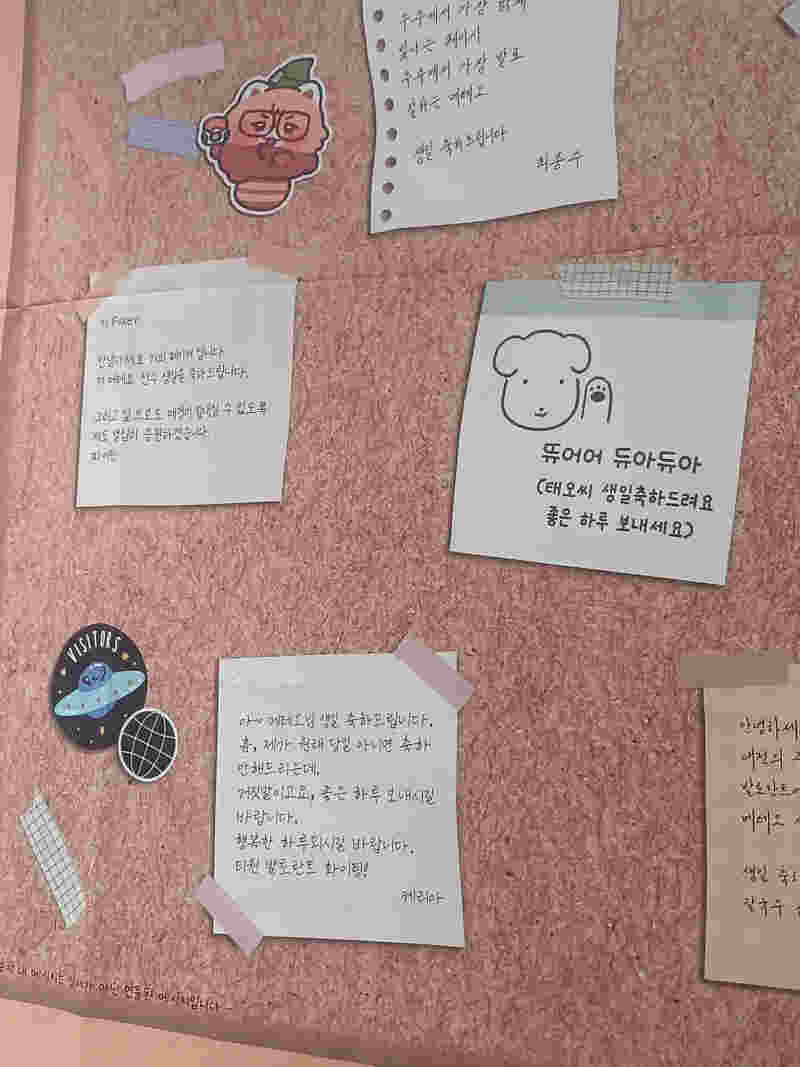 우주에서 가장 밝게
빛나는 페이커
우주에서 가장 발로
잘하는 메테오
생일 축하드립니다
최종수
T1 Faker
안녕하세요 T1의 페이커 입니다
저 메테오 선수 생일을 축하드립니다.
그리고 앞으로도 수 있도록
저도 열심히 응원하겠습니다
뜌어어 듀아듀아
(태오씨 생일축하드려요
좋은 하루 보내세요)
VISITORS
아~ 메테오님 생일 축하드립니다.
흠, 제가 원래 당일 아니면 축하
안해드리는데,
거짓말이고요, 좋은 하루 보내시길
바랍니다.
행복한 하루되시길 바랍니다.
티원 발로란트 화이팅!
케리아
안녕하세
대전의
발로란트
메테오
생일 축하
내 메시지는 아닌 연출된 메시지입니다